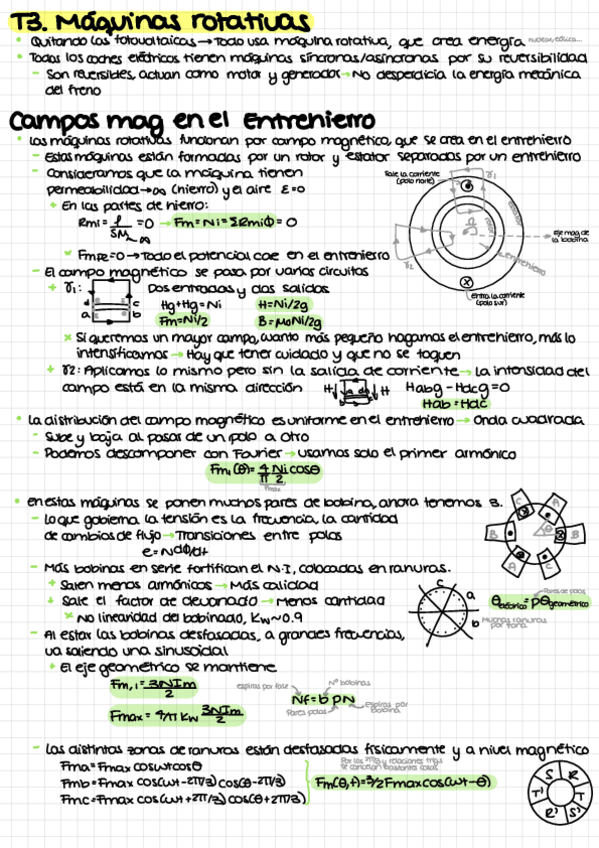 T3. Máquinas rotativas
• Quitando las fotovoltaicas → Todo usa máquina rotativa, que crea energía nuclear, eólica...
• Todos los coches eléctricos tienen máquinas síncronas/asíncronas por su reversibilidad
- Son reversibles, actúan como motor y generador → No desperdicia la energía mecánica
del freno
Campos mag en el Entrehierro
• Las máquinas rotativas funcionan por campo magnético, que se crea en el entrehierro
- Estas máquinas están formadas por un rotor y estator separadas por un entrehierro
- Consideramos que la máquina tienen
permeabilidad → ∞ (hierro) y el aire ε=0
+ En las partes de hierro:
Rmi = l/SM = 0 → Fm = Ni = ΣRmiϕ = 0
∞
* FmFe=0 → Todo el potencial cae en el entrehierro
sale la corriente
(polo norte)
γ1
γ2
estator
rotor
Eje mag de
la bobina
entrehierro
entra la corriente
(polo sur)
- El campo magnético se pasa por varios circuitos
+ γ1: Dos entradas y dos salidas
d c
a b
Hg+Hg=Ni H=Ni/2g
Fm=Ni/2 B=μoNi/2g
* Si queremos un mayor campo, cuanto más pequeño hagamos el entrehierro, más lo
intensificamos → Hay que tener cuidado y que no se toquen
+ γ2: Aplicamos lo mismo pero sin la salida de corriente → La intensidad del
campo está en la misma dirección H H Habg - Hdcg = 0
Hab = Hdc
• La distribución del campo magnético es uniforme en el entrehierro → Onda cuadrada
- Sube y baja al pasar de un polo a otro
- Podemos descomponer con Fourier → usamos solo el primer armónico
Fm1(θ) = 4/π Ni/2 cosθ
Fmax
• en estas máquinas se ponen muchos pares de bobina, ahora tenemos 3.
- Lo que gobierna la tensión es la frecuencia, la cantidad
de cambios de flujo → Transiciones entre polos
e = Ndϕ/dt
- Más bobinas en serie fortifican el N·I, colocadas en ranuras.
+ Salen menos armónicos → Más calidad
+ Sale el factor de devanado → Menos cantidad
* No linearidad del bobinado, Kw~0.9
C A
B A
A C
C
a
b
Pares de polos
θeléctrico = pθgeométrico
Muchas ranuras
por zona
- Al estar las bobinas desfasadas, a grandes frecuencias,
va saliendo una sinusoidal
+ El eje geométrico se mantiene
Fm,1 = 3NIm/2
Fmax = 4/π Kw 3NIm/2
espiras por fase Nº bobinas
Nf = b p N
Pares polos Espiras por
bobina
- Las distintas zonas de ranuras están desfasadas físicamente y a nivel magnético
Fma = Fmax coswtcosθ
Fmb = Fmax cos(wt-2π/3) cos(θ-2π/3)
Fmc = Fmax cos(wt+2π/3) cos(θ+2π/3)
Por los 2π/3 y relaciones trigs
se cancelan bastantes cosas
Fm(θ,t) = 3/2 Fmax cos(wt-θ)
S R
T' T
R' S'